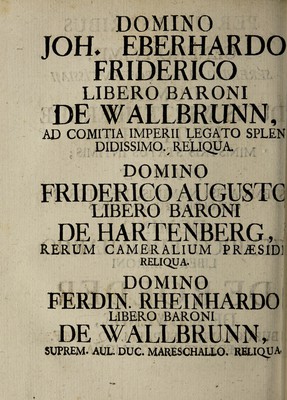 DOMINO
JOH. EBERHARDO
FRIDERICO
LIBERO BARONI
DE WALLBRUNN,
AD COMITIA IMPERII LEGATO SPLEN
DIDISSIMO. RELIQUA.
DOMINO
FRIDERICO AUGUSTO
LIBERO BARONI
DE HARTENBERG,
RERUM CAMERALIUM PRÆSIDI
RELIQUA.
DOMINO
FERDIN. RHEINHARDO
LIBERO BARONI
DE WALLBRUNN,
SUPREM. AUL. DUC. MARESCHALLO. RELIQUA